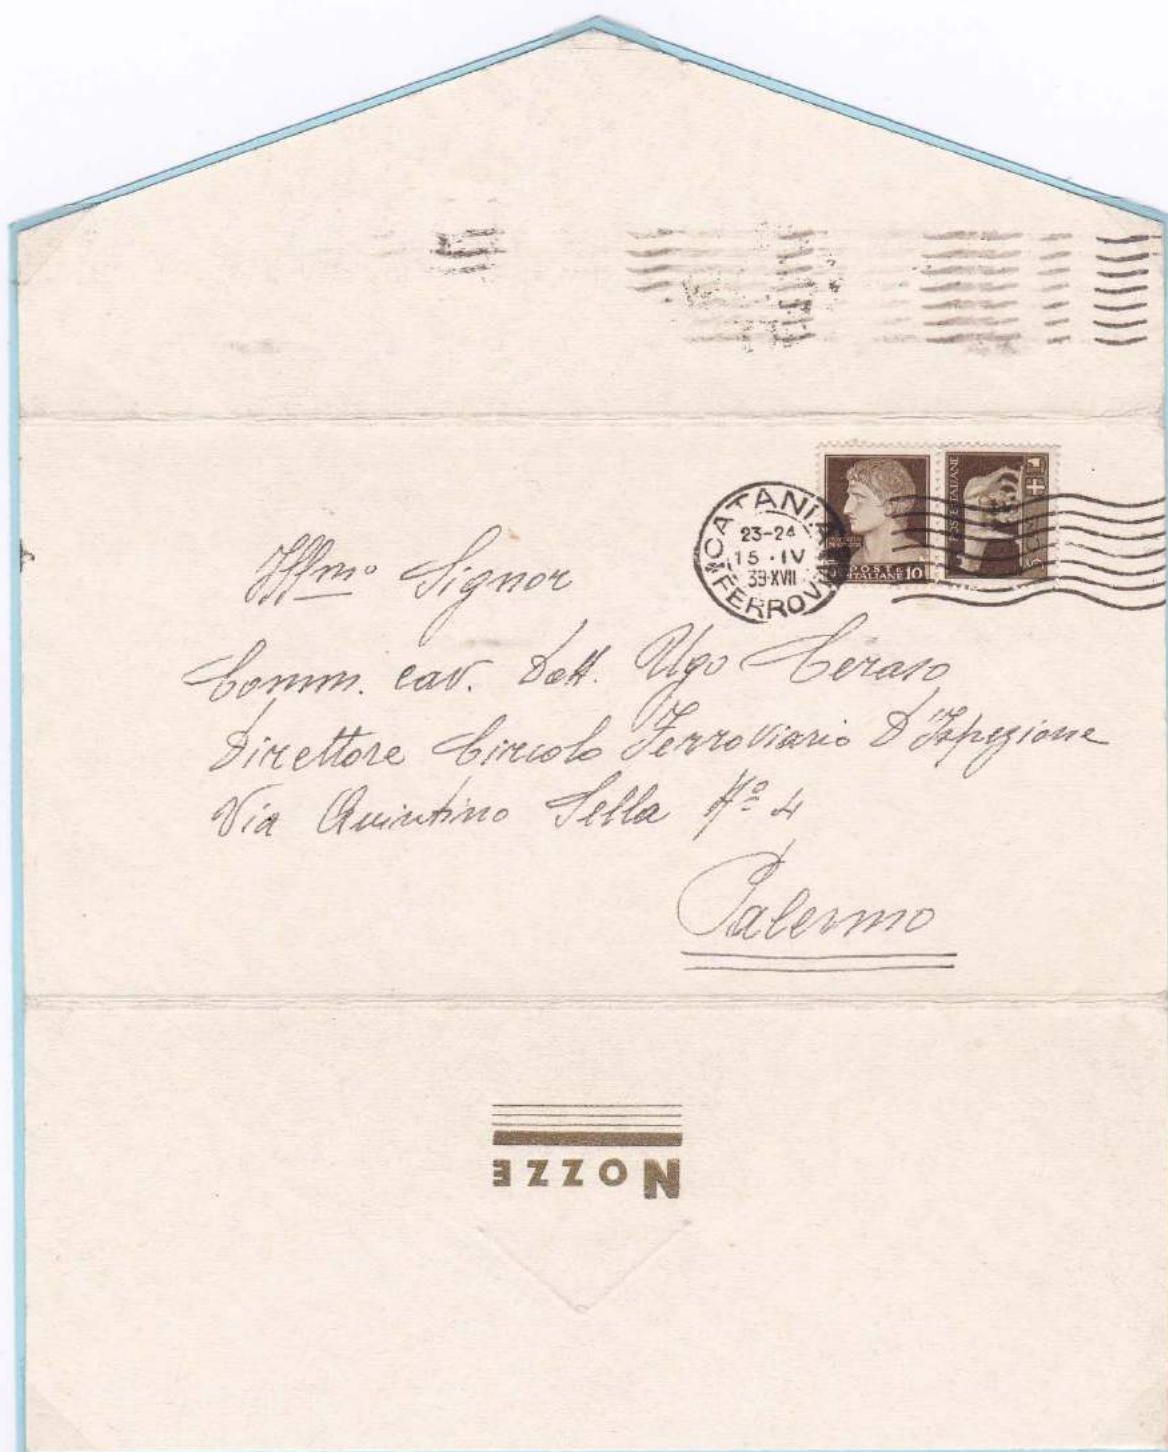 CATANIA
FERROVIA
23-24
15 · IV
39·XVII
POSTE
ITALIANE 10
POSTE ITALIANE
CENT 5
Illmo Signor
Comm. cav. Dott. Ugo Ceraso
Direttore Circolo Ferroviario D'Ispezione
Via Quintino Sella Nº 4
Palermo
NOZZE